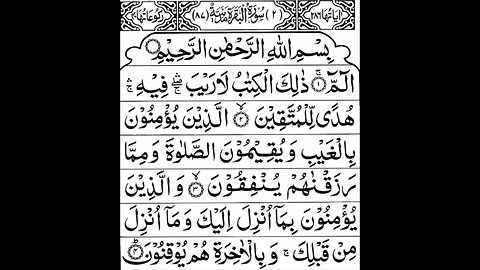 اٰيَاتُهَا ٢٨٦ (٢) سُوْرَةُ الْبَقَرَةِ مَدَنِيَّةٌ (٨٧) رُكُوْعَاتُهَا ٤٠
بِسْمِ اللهِ الرَّحْمٰنِ الرَّحِيْمِ
الٓمّٓ ۚ﴿١﴾ ذٰلِكَ الْكِتٰبُ لَا رَيْبَ ۛۖ فِيْهِ ۛۚ
هُدًى لِّلْمُتَّقِيْنَ ﴿٢﴾ الَّذِيْنَ يُؤْمِنُوْنَ
بِالْغَيْبِ وَيُقِيْمُوْنَ الصَّلٰوةَ وَمِمَّا
رَزَقْنٰهُمْ يُنْفِقُوْنَ ﴿٣﴾ وَالَّذِيْنَ
يُؤْمِنُوْنَ بِمَآ اُنْزِلَ اِلَيْكَ وَمَآ اُنْزِلَ
مِنْ قَبْلِكَ ۚ وَبِالْاٰخِرَةِ هُمْ يُوْقِنُوْنَ ﴿٤﴾